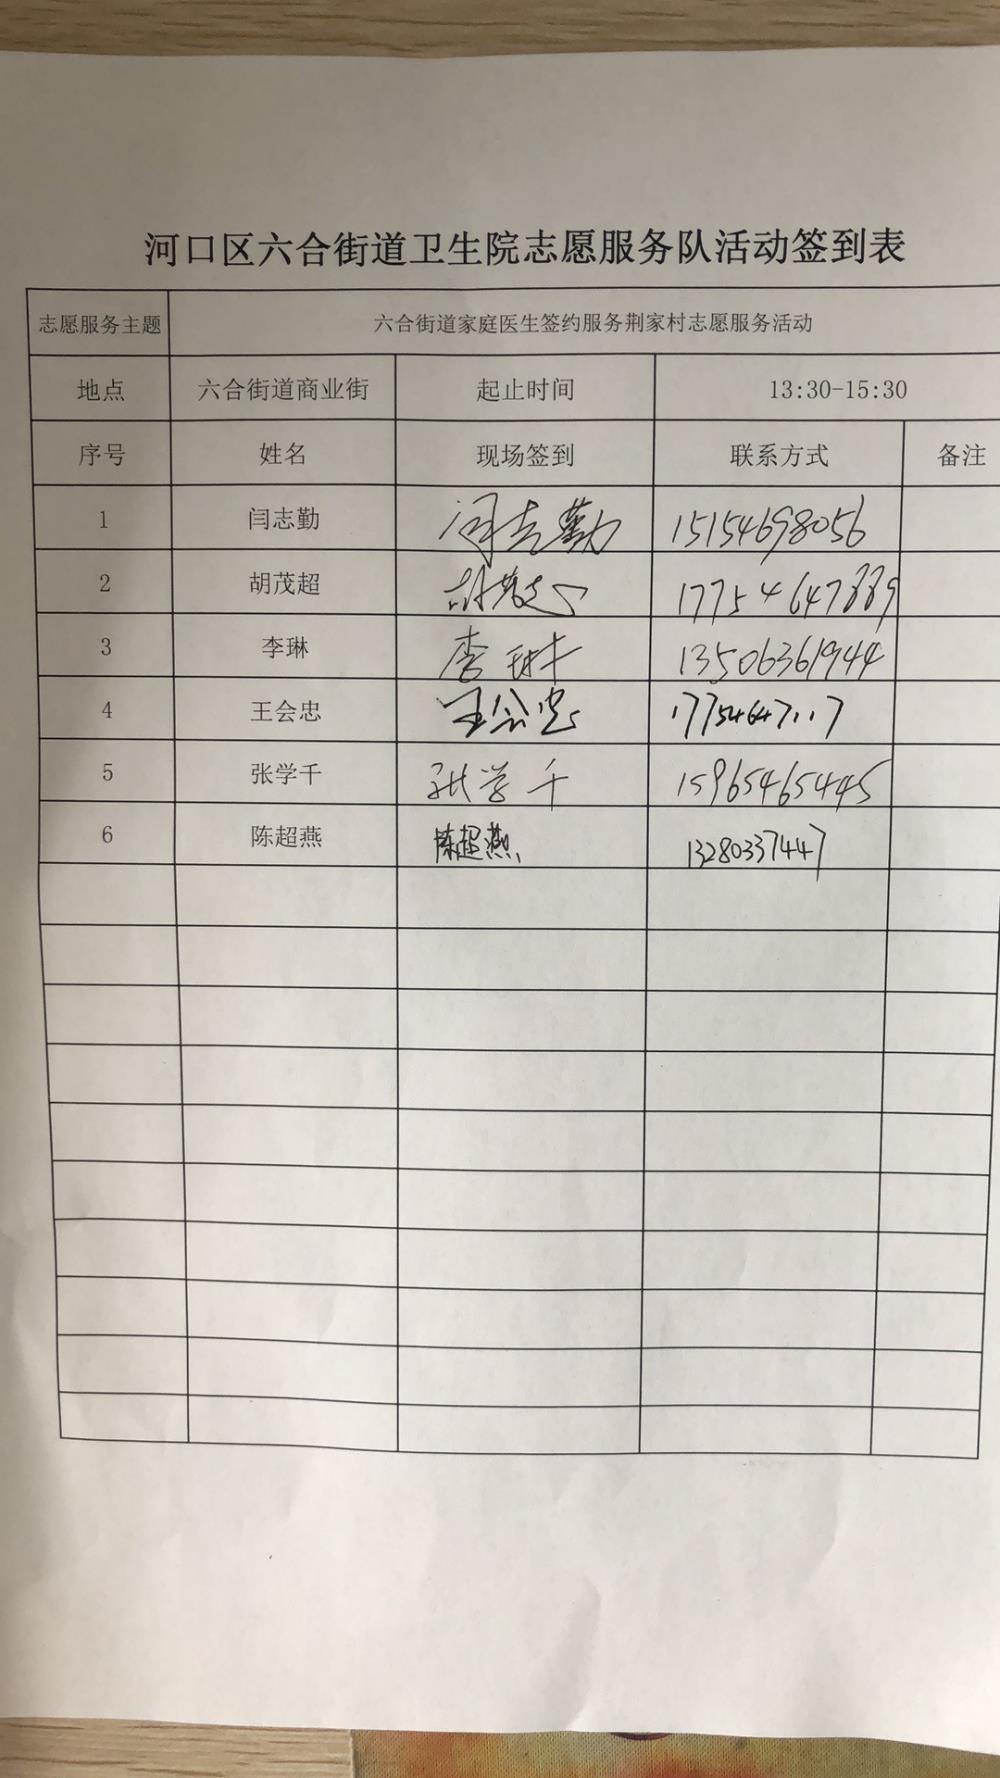 河口区六合街道卫生院志愿服务队活动签到表
志愿服务主题 六合街道家庭医生签约服务荆家村志愿服务活动
地点 六合街道商业街 起止时间 13:30-15:30
序号 姓名 现场签到 联系方式 备注
1 闫志勤 闫志勤 15154698056
2 胡茂超 胡茂超 17754647889
3 李琳 李琳 13506361944
4 王会忠 王会忠 17754647117
5 张学千 张学千 15965465445
6 陈超燕 陈超燕 13280337447